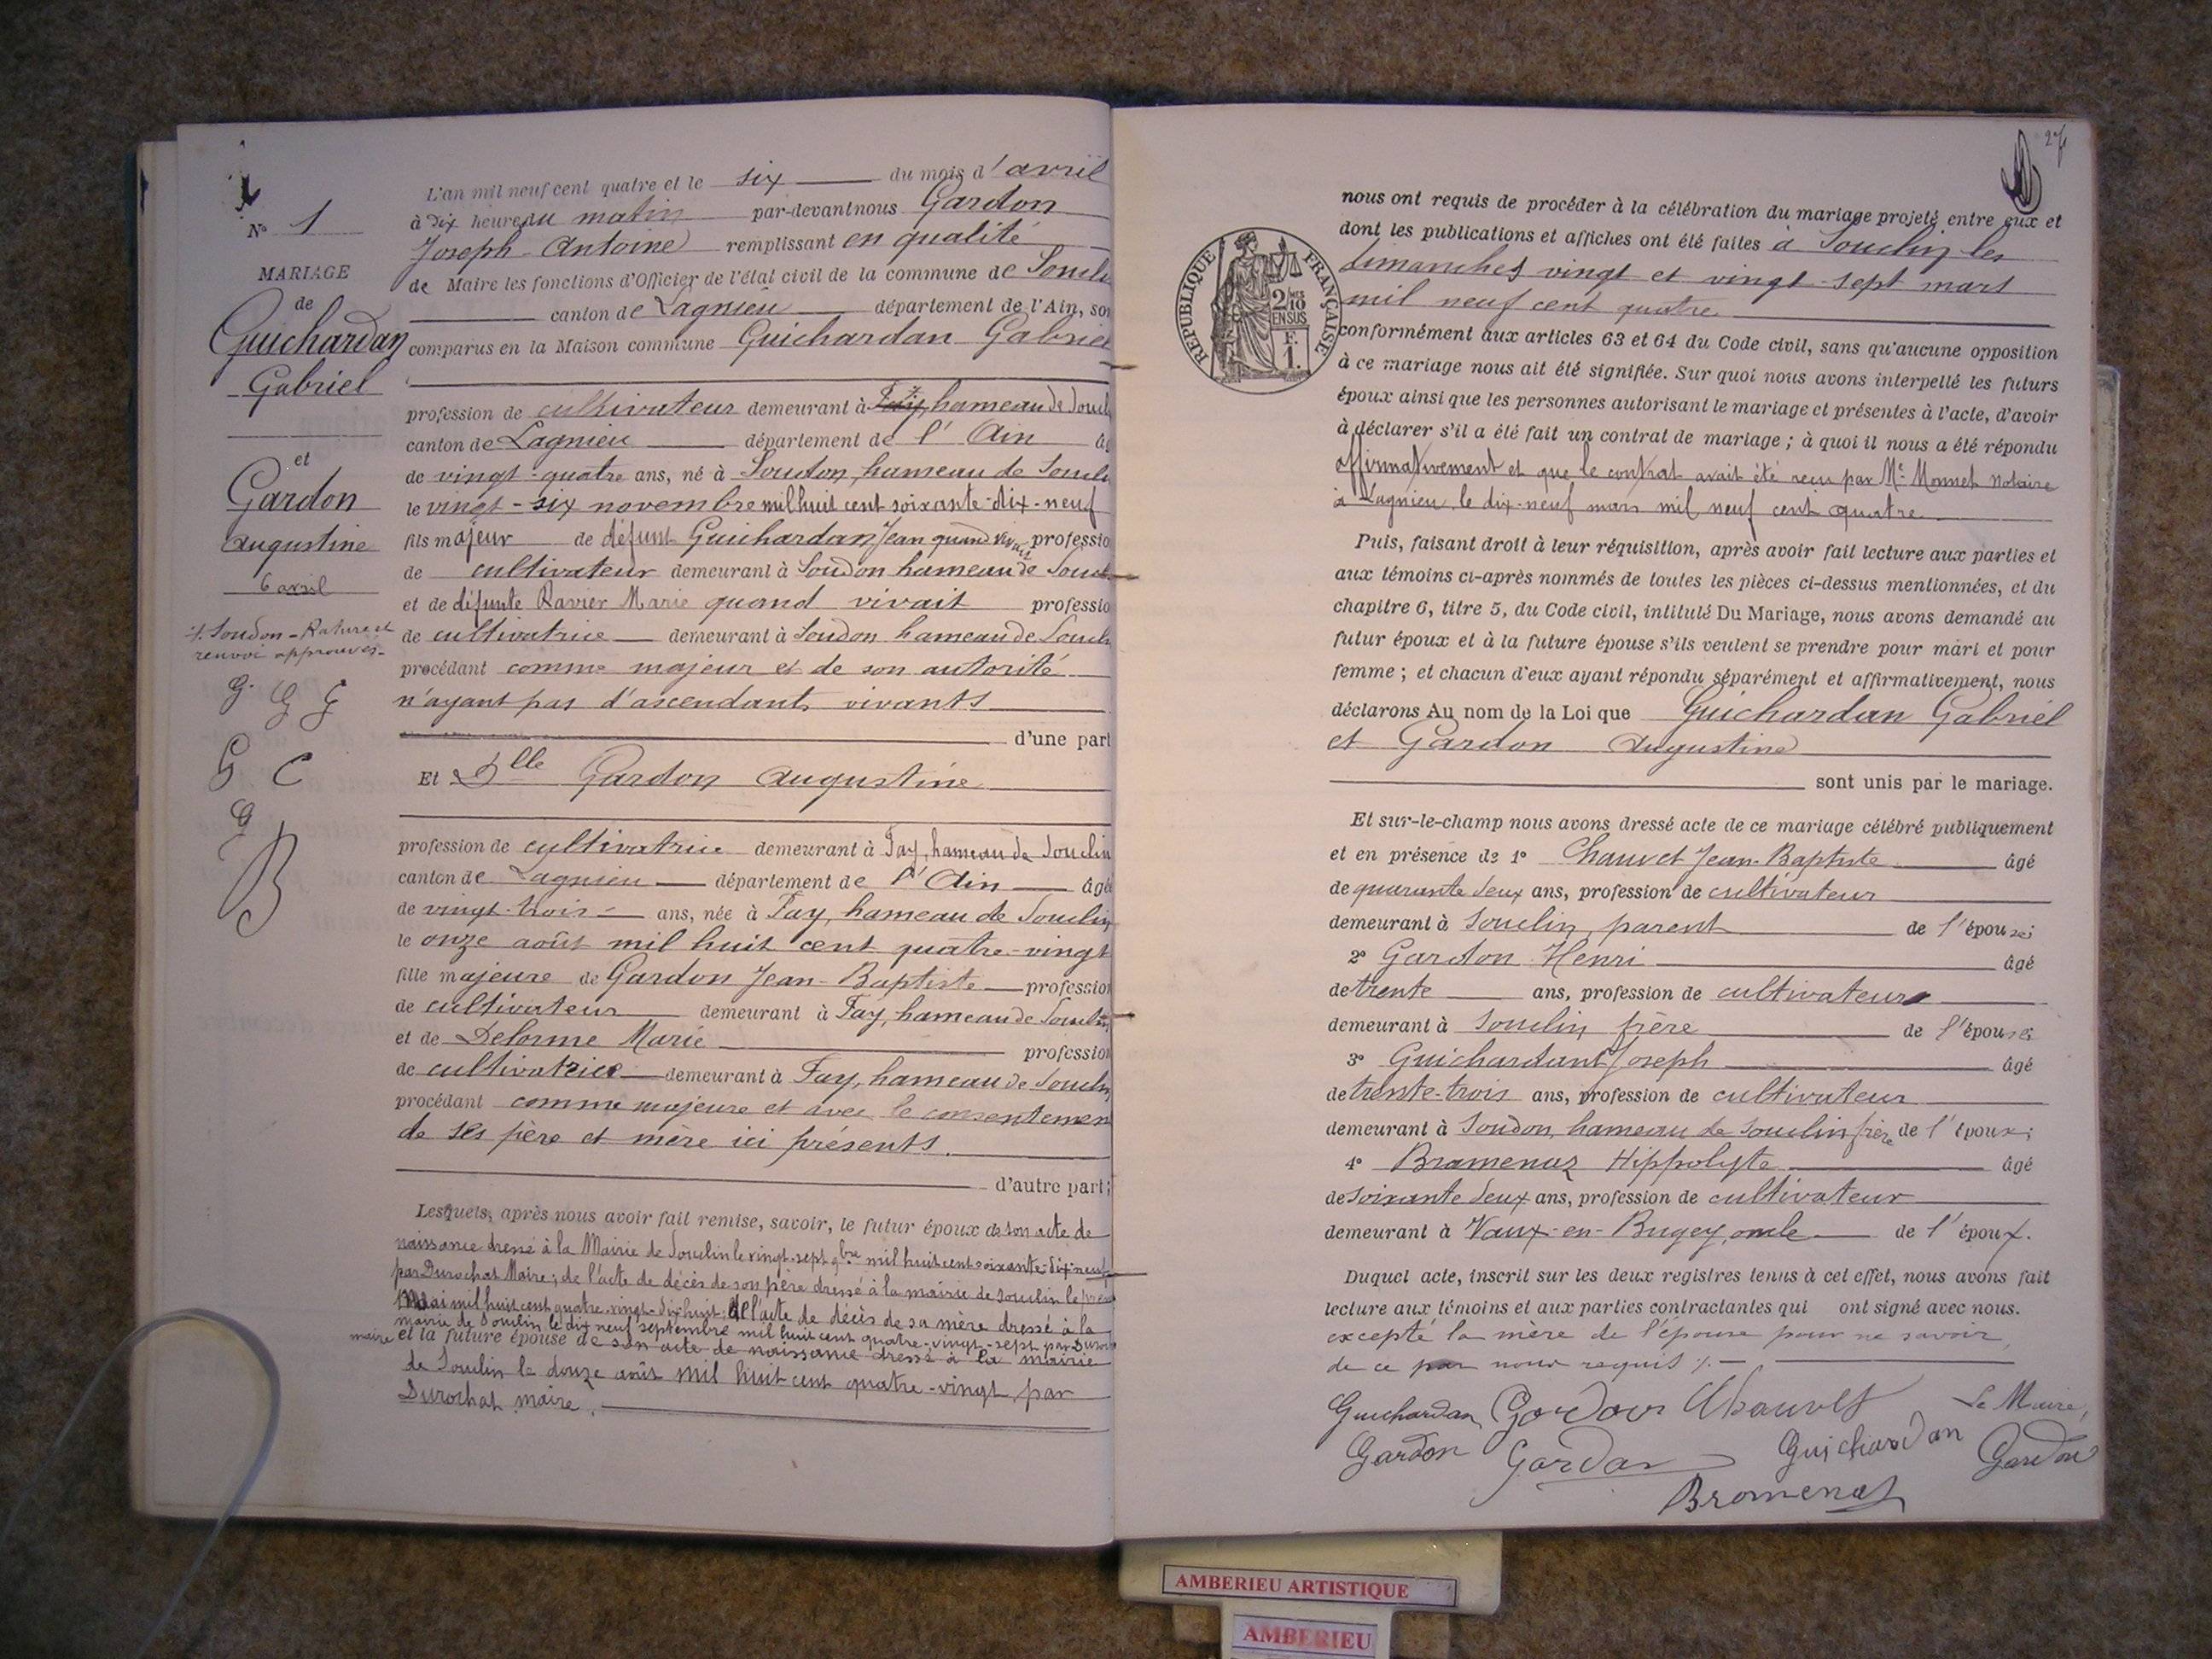 N° 1
MARIAGE
de
Guichardan
Gabriel
et
Gardon
Augustine
6 avril
Soudon - Rature et
renvoi approuvés -
G. G G
G C
G
B
L'an mil neuf cent quatre et le six du mois d'avril
à dix heures du matin par-devant nous Gardon
Joseph - Antoine remplissant en qualité
de Maire les fonctions d'Officier de l'état civil de la commune de Soucli
canton de Lagnieu département de l'Ain, son
comparus en la Maison commune Guichardan Gabriel
profession de cultivateur demeurant à Fay, hameau de Soucl
canton de Lagnieu département de l'Ain âg
de vingt-quatre ans, né à Soudon, hameau de Soucli
le vingt-six novembre mil huit cent soixante-dix-neuf
fils majeur de défunt Guichardan Jean quand vivait professio
de cultivateur demeurant à Soudon hameau de Soucl
et de défunte Ravier Marie quand vivait professio
de cultivatrice demeurant à Soudon hameau de Soucli
procédant comme majeur et de son autorité
n'ayant pas d'ascendants vivants
d'une part
Et Dlle Gardon Augustine
profession de cultivatrice demeurant à Fay, hameau de Souclin
canton de Lagnieu département de l'Ain âgé
de vingt-trois ans, née à Fay, hameau de Souclin
le onze août mil huit cent quatre-vingt
fille majeure de Gardon Jean-Baptiste profession
de cultivateur demeurant à Fay, hameau de Souclin
et de Delorme Marie profession
de cultivatrice demeurant à Fay, hameau de Souclin
procédant comme majeure et avec le consentemen
de ses père et mère ici présents.
d'autre part;
Lesquels, après nous avoir fait remise, savoir, le futur époux de son acte de
naissance dressé à la Mairie de Souclin le vingt-sept 9bre mil huit cent soixante-dix-neuf
par Durochat Maire; de l'acte de décès de son père dressé à la mairie de Souclin le
Mai mil huit cent quatre-vingt-dix-huit; de l'acte de décès de sa mère dressé à la
mairie de Souclin le dix neuf septembre mil huit cent quatre-vingt-sept par Duroch
maire et la future épouse de son acte de naissance dressé à la mairie
de Souclin le douze août mil huit cent quatre-vingt par
Durochat maire.
27
RÉPUBLIQUE FRANÇAISE
2/10 MES
EN SUS
F.
1.
nous ont requis de procéder à la célébration du mariage projeté entre eux et
dont les publications et affiches ont été faites à Souclin les
dimanches vingt et vingt-sept mars
mil neuf cent quatre
conformément aux articles 63 et 64 du Code civil, sans qu'aucune opposition
à ce mariage nous ait été signifiée. Sur quoi nous avons interpellé les futurs
époux ainsi que les personnes autorisant le mariage et présentes à l'acte, d'avoir
à déclarer s'il a été fait un contrat de mariage; à quoi il nous a été répondu
affirmativement et que le contrat avait été reçu par Me Monnet Notaire
à Lagnieu le dix-neuf mars mil neuf cent quatre
Puis, faisant droit à leur réquisition, après avoir fait lecture aux parties et
aux témoins ci-après nommés de toutes les pièces ci-dessus mentionnées, et du
chapitre 6, titre 5, du Code civil, intitulé Du Mariage, nous avons demandé au
futur époux et à la future épouse s'ils veulent se prendre pour mari et pour
femme; et chacun d'eux ayant répondu séparément et affirmativement, nous
déclarons Au nom de la Loi que Guichardan Gabriel
et Gardon Augustine
sont unis par le mariage.
Et sur-le-champ nous avons dressé acte de ce mariage célébré publiquement
et en présence de 1° Chauvet Jean-Baptiste âgé
de quarante deux ans, profession de cultivateur
demeurant à Souclin, parent de l'épouse;
2° Gardon Henri âgé
de trente ans, profession de cultivateur
demeurant à Souclin, frère de l'épouse;
3° Guichardant Joseph âgé
de trente-trois ans, profession de cultivateur
demeurant à Soudon, hameau de Souclin frère de l'époux;
4° Bramenaz Hippolyte âgé
de soixante deux ans, profession de cultivateur
demeurant à Vaux-en-Bugey, oncle de l'époux.
Duquel acte, inscrit sur les deux registres tenus à cet effet, nous avons fait
lecture aux témoins et aux parties contractantes qui ont signé avec nous.
excepté la mère de l'épouse pour ne savoir
de ce par nous requis
Guichardan Gardon Chauvet Le Maire,
Gardon Gardon Guichardan Gardon
Bromenas
AMBERIEU ARTISTIQUE
AMBERIEU